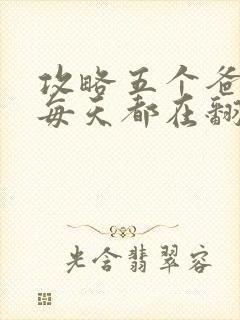 攻略五个爸
每天都在翻
光含翡翠容